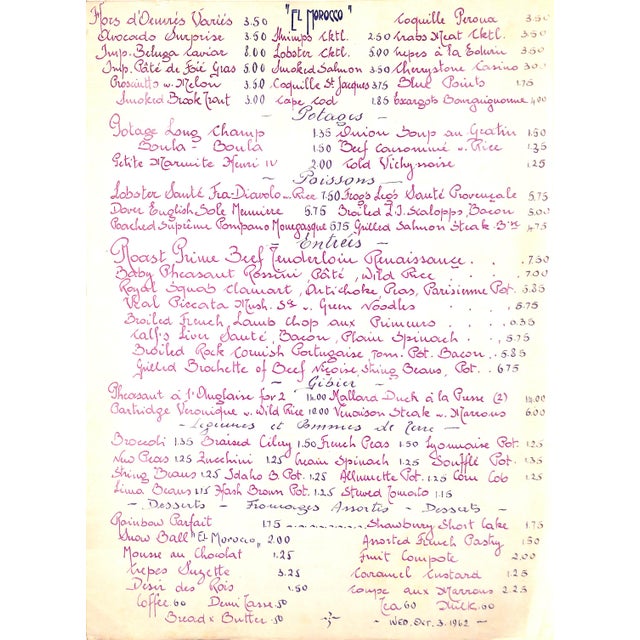 "EL MOROCCO"
Hors d'Oeuvrés Variés 3.50 Coquille Perona 3.50
Avocado Surprise 3.50 Shrimps Cktl. 2.50 Crabs Meat Cktl. 3.50
Imp. Beluga Caviar 8.00 Lobster Cktl. 5.00 Crepes à la 3.50
Imp. Pâté de Foié Gras 5.00 Smoked Salmon 3.50 Cherrystone Casino 3.00
Prosciutto w. Melon 3.50 Coquille St. Jacques 3.75 Blue Points 1.75
Smoked Brook Trout 3.00 Cape Cod 1.85 Escargots Bourguignonne 4.00
- Potages -
Potage Long Champ 1.35 Onion Soup au Gratin 1.50
Boula - Boula 1.50 Beef Consommé w. Rice 1.35
Petite Marmite Henri IV 2.00 Cold Vichynoise 1.25
- Poissons -
Lobster Sauté Fra-Diavolo w. Rice 7.50 Frog's Leg's Sauté Provençale 5.75
Dover English Sole Meuniere 5.75 Broiled L.I. Scalopps, Bacon 5.00
Poached Suprême Pompano Monegasque 5.75 Grilled Salmon Steak 4.75
- Entrées -
Roast Prime Beef Tenderloin Renaissance . . . 7.50
Baby Pheasant Rossini, Pâté, Wild Rice . . . 7.00
Royal Squab Clamart, Artichoke Peas, Parisienne Pot. 5.85
Veal Piccata Mush. Sce w. Green Noodles . . . 5.75
Broiled French Lamb Chop aux Primeurs . . . 6.35
Calf's Liver Sauté, Bacon, Plain Spinach . . . 5.75
Broiled Rock Cornish Portugaise, Tom. Pot. Bacon . 5.85
Grilled Brochette of Beef Niçoise, String Beans, Pot. 6.75
- Gibier -
Pheasant à l'Anglaise for 2 14.00 Mallard Duck à la Presse (2) 14.00
Partridge Veronique w. Wild Rice 10.00 Venaison Steak w. Marrons 6.00
- Légumes et Pommes de Terre -
Broccoli 1.35 Braised Celery 1.50 French Peas 1.50 Lyonnaise Pot. 1.25
New Peas 1.25 Zucchini 1.25 Cream Spinach 1.25 Soufflé Pot. 1.35
String Beans 1.25 Idaho B. Pot. 1.25 Allumette Pot. 1.25 Corn Cob 1.25
Lima Beans 1.15 Hash Brown Pot. 1.25 Stewed Tomato 1.15
- Desserts - Fromages Assortis - Desserts -
Rainbow Parfait 1.75 Strawberry Short Cake 1.75
Snow Ball "El Morocco" 2.00 Assorted French Pastry 1.50
Mousse au Chocolat 1.25 Fruit Compote 2.00
Crepes Suzette 3.25 Caramel Custard 1.25
Desir des Rois 1.50 Coupe aux Marrons 2.25
Coffee .60 Demi Tasse .50 Tea .60 Milk .60
Bread & Butter .50 - Wed. Oct. 3. 1962 -